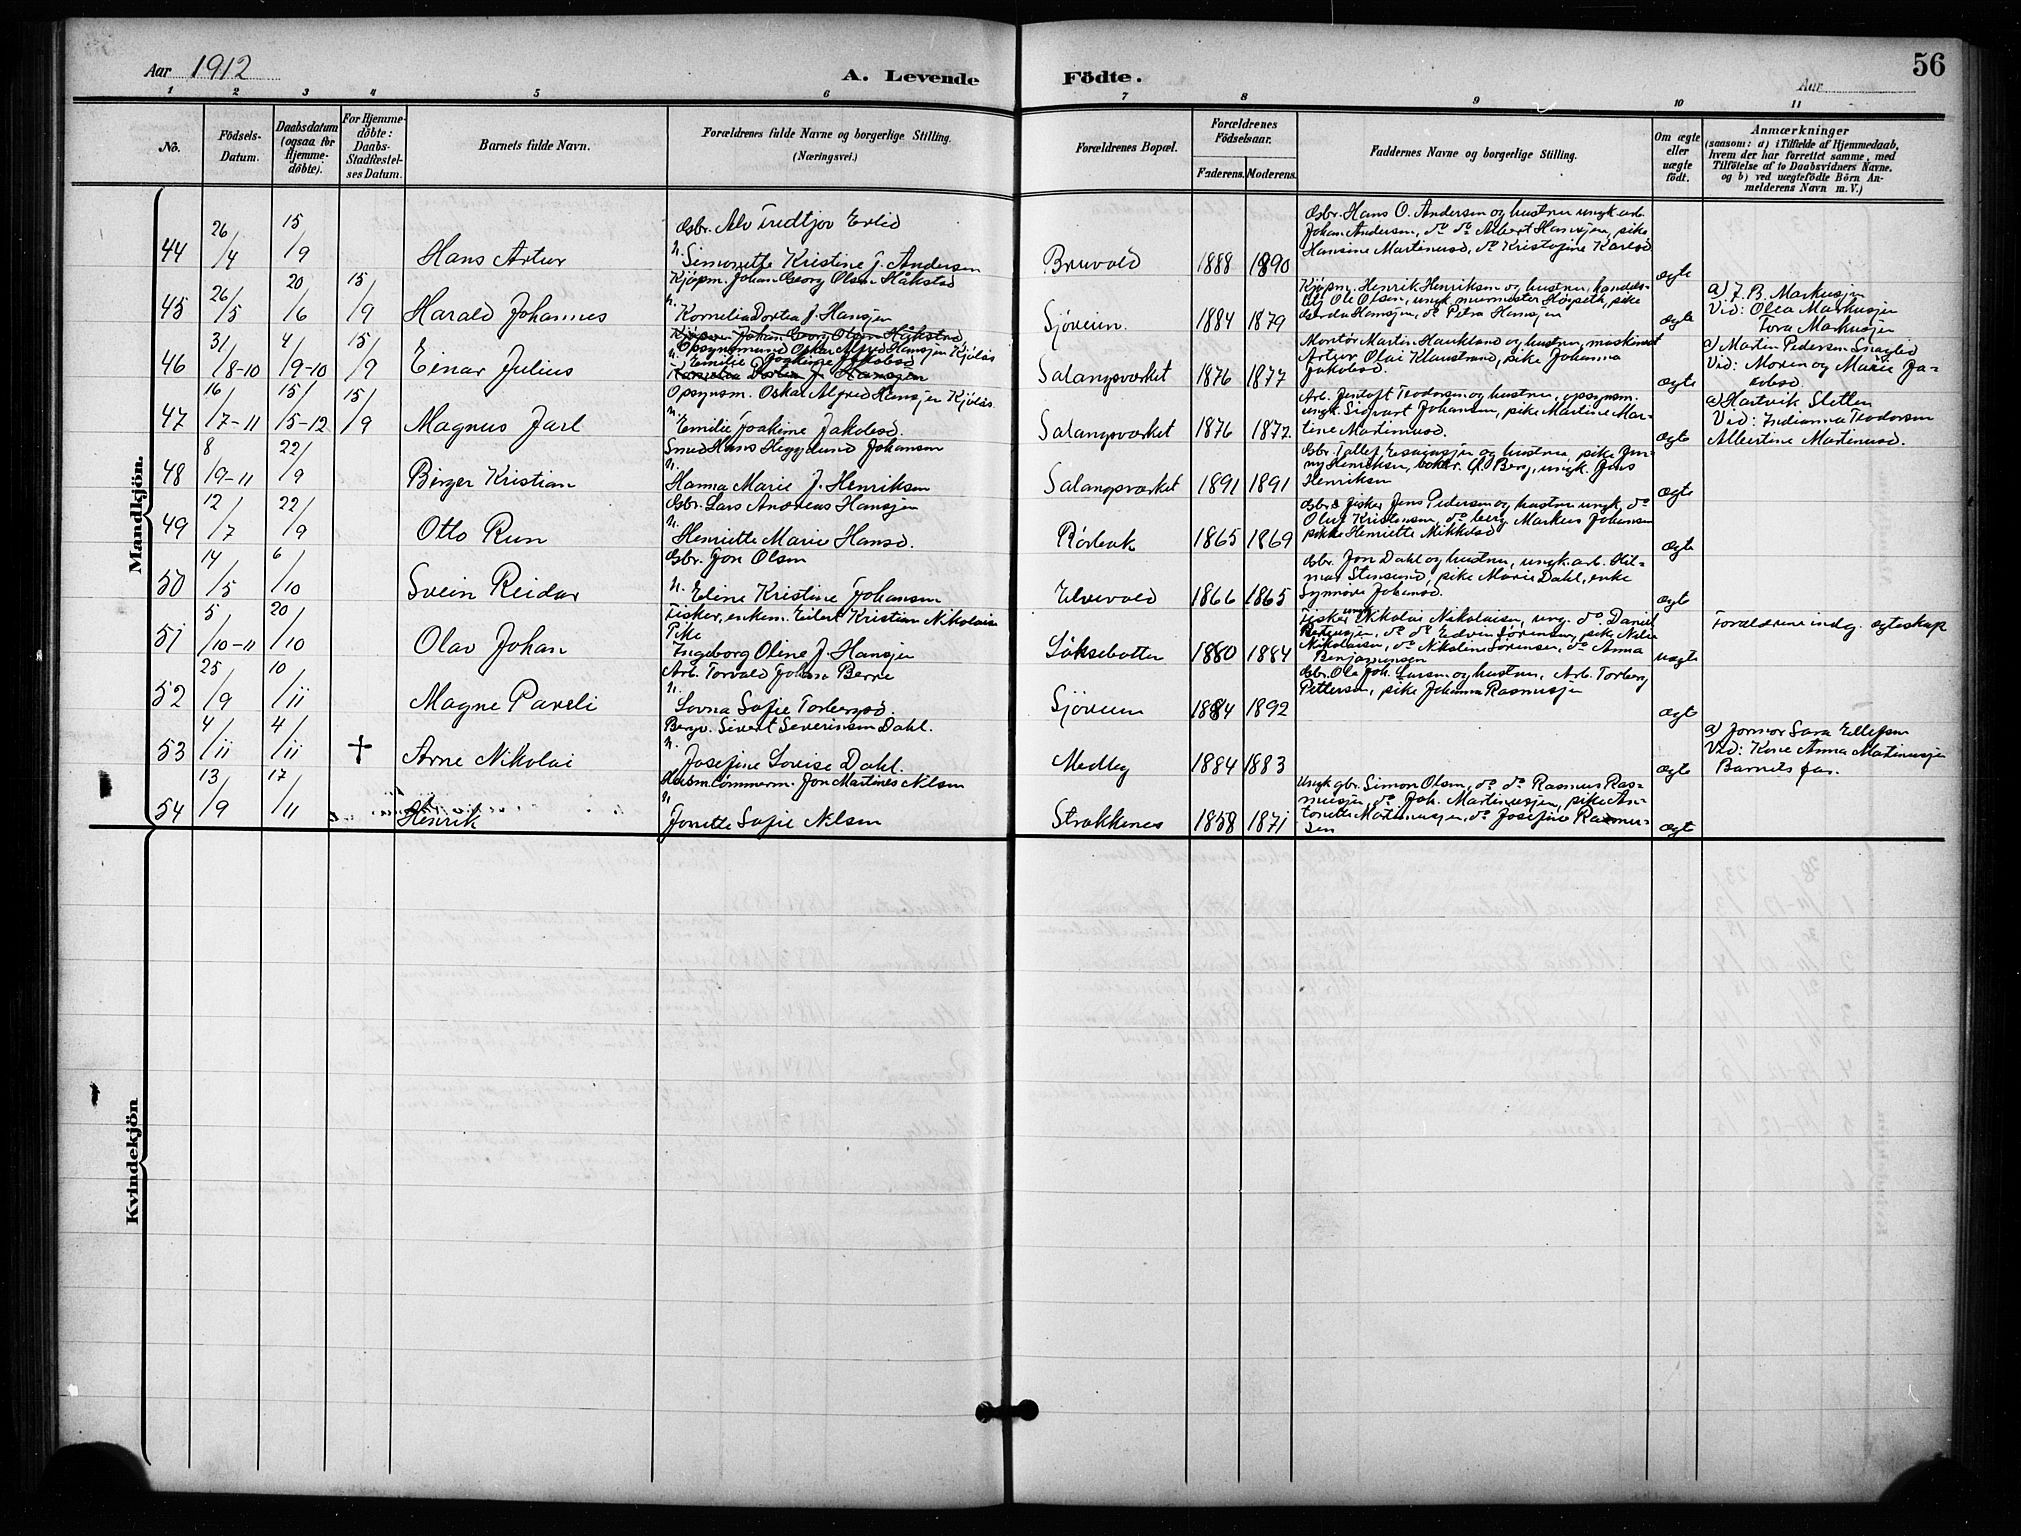 Aar 1912
A. Levende Födte.
Aar
56
1 2 3 4 5 6 7 8 9 10 11
No.
Födsels-
Datum.
Daabsdatum
(ogsaa for
Hjemme-
döbte).
For Hjemme-
döbte:
Daabs-
Stadfæstel-
ses Datum.
Barnets fulde Navn.
Forældrenes fulde Navne og borgerlige Stilling.
(Næringsvei.)
Forældrenes Bopæl.
Forældrenes
Födselsaar.
Faderens. Moderens.
Faddernes Navne og borgerlige Stilling.
Om ægte
eller
uægte
födt.
Anmærkninger
(saasom: a) i Tilfælde af Hjemmedaab,
hvem der har forrettet samme, med
Tilföielse af to Daabsvidners Navne.
og b) ved uægtefödte Börn An-
melderens Navn m. V.)
Mandkjön.
44 26/4 15/9 Hans Artur
Gbr. Alv Fredtjov Evlid
h. Simonette Kristine J. Andersen
Bruvold 1888 1890
Gbr. Hans O. Andersen og hustru, ungk. arb.
Johan Andersen, do do Albert Hansjen, pike
Hansine Martinusd, do Kristofine Karlsd
ægte
45 26/5 20/6 15/9 Harald Johannes
Kjöpm. Johan Georg Olsen Håkstad
h. Kornelia Dortea J. Hansjen
Sjöveien. 1884 1879
Kjöpm. Henrik Henriksen og hustru, handels-
Ole Olsen, ungk. murmester Högseth, pike
Gerda Hansjen, do Petra Hansjen
ægte
a) J. B. Markusjen
Vid: Olea Markusjen
Tora Markusjen
46 31/8-10 4/9-10 15/9 Einar Julius
Kjöpm. Johan Georg Olsen Håkstad
Opsynsmand Oskar Alfred Hansjen Kjölås
h. Emilie Joakime Jakobsd
Kornelia Dortea J. Hansjen
Salangsverket 1876 1877
Montör Martin Haukland og hustru, maskinist
Artur Olai Klaustrand, pike Johanna
Jakobsd.
ægte
a) Martin Pedersen Snaglid
Vid: Moren og Marie Ja-
kobsd.
47 16/7-11 15/5-12 15/9 Magnus Jarl
Opsynsm. Oskar Alfred Hansjen Kjölås.
h. Emilie Joakime Jakobsd.
Salangsverket 1876 1877.
Arb. Jentoft Teodorsen og hustru, opsynsm.
ungk. Sigvart Johansen, pike Martine Mar-
tine Martinusd.
ægte
a) Hartvik Sletten
Vid: Indianna Teodorsen
Albertine Martinusd.
48 8/9-11 22/9 Birger Kristian
Smed Hans Heggelund Johansen
h. Hanna Marie J. Henriksen
Salangsverket 1891 1891
Gbr. Tollef Esaiassjen og hustru, pike Jen-
ny Henriksen, Berg, ungk. Jens
Henriksen
ægte
49 12/7 22/9 Otto Run
Gbr. Lars Andreas Hansjen
h. Henriette Marie Hansd.
Rörbak 1865 1869
Gbr. & fisker Jens Pedersen og hustru, ungk. do
Oluf Kristensen, do berg. Markus Johansen
pikke Henriette Mikkelsd
ægte
50 14/5 6/10 Svein Reidar
Gbr. Jon Olsen
h. Eline Kristine Johansen
Elvevold 1866 1865
Gbr. Jon Dahl og hustru, ungk. arb. Hil-
mar Stensund, pike Marie Dahl, enke
Synnöve Johansd.
ægte
51 5/10-11 20/10 Olav Johan
Fisker, enkem. Eilert Kristian Nikolaisen
Pike
Ingeborg Oline J. Hansjen
Löksebotten 1880 1884
Fisker ungk. Nikolai Nikolaisen, ung. do Daniel
do do Edvin Sörensen, pike Nelie
Nikolaisen, do Nikoline Sörensen, do Anna
Benjaminsen
uægte
Forældrene indg. ægteskap
52 25/9 10/11 Magne Pareli
Arb. Torvald Johan Berre
h. Lovna Sofie Torbergsd.
Sjöveien 1884 1892
Gbr. Ole Joh. Larsen og hustru, Arb. Torberg
Pettersen, pike Johanna Rasmusjen
ægte
53 4/11 4/11 † Arne Nikolai
Bergv. Sivert Severinsen Dahl.
h. Josefine Lovise Dahl.
Medby 1884 1883
ægte
a) Jormor Sara Ellefsen
Vid: Kone Anna Martinusjen
Barnets far.
54 13/9 17/11 Henrik
Husm. tömmerm. Jon Martines Nilsen
h. Jonette Sofie Nilsen
Strokkenes 1858 1871
Ungk. gbr. Simon Olsen, do do Rasmus Ras-
musjen, do Joh. Martinusjen, pike An-
tonette Martinusjen, do Josefine Rasmus-
sen
ægte
Kvindekjön